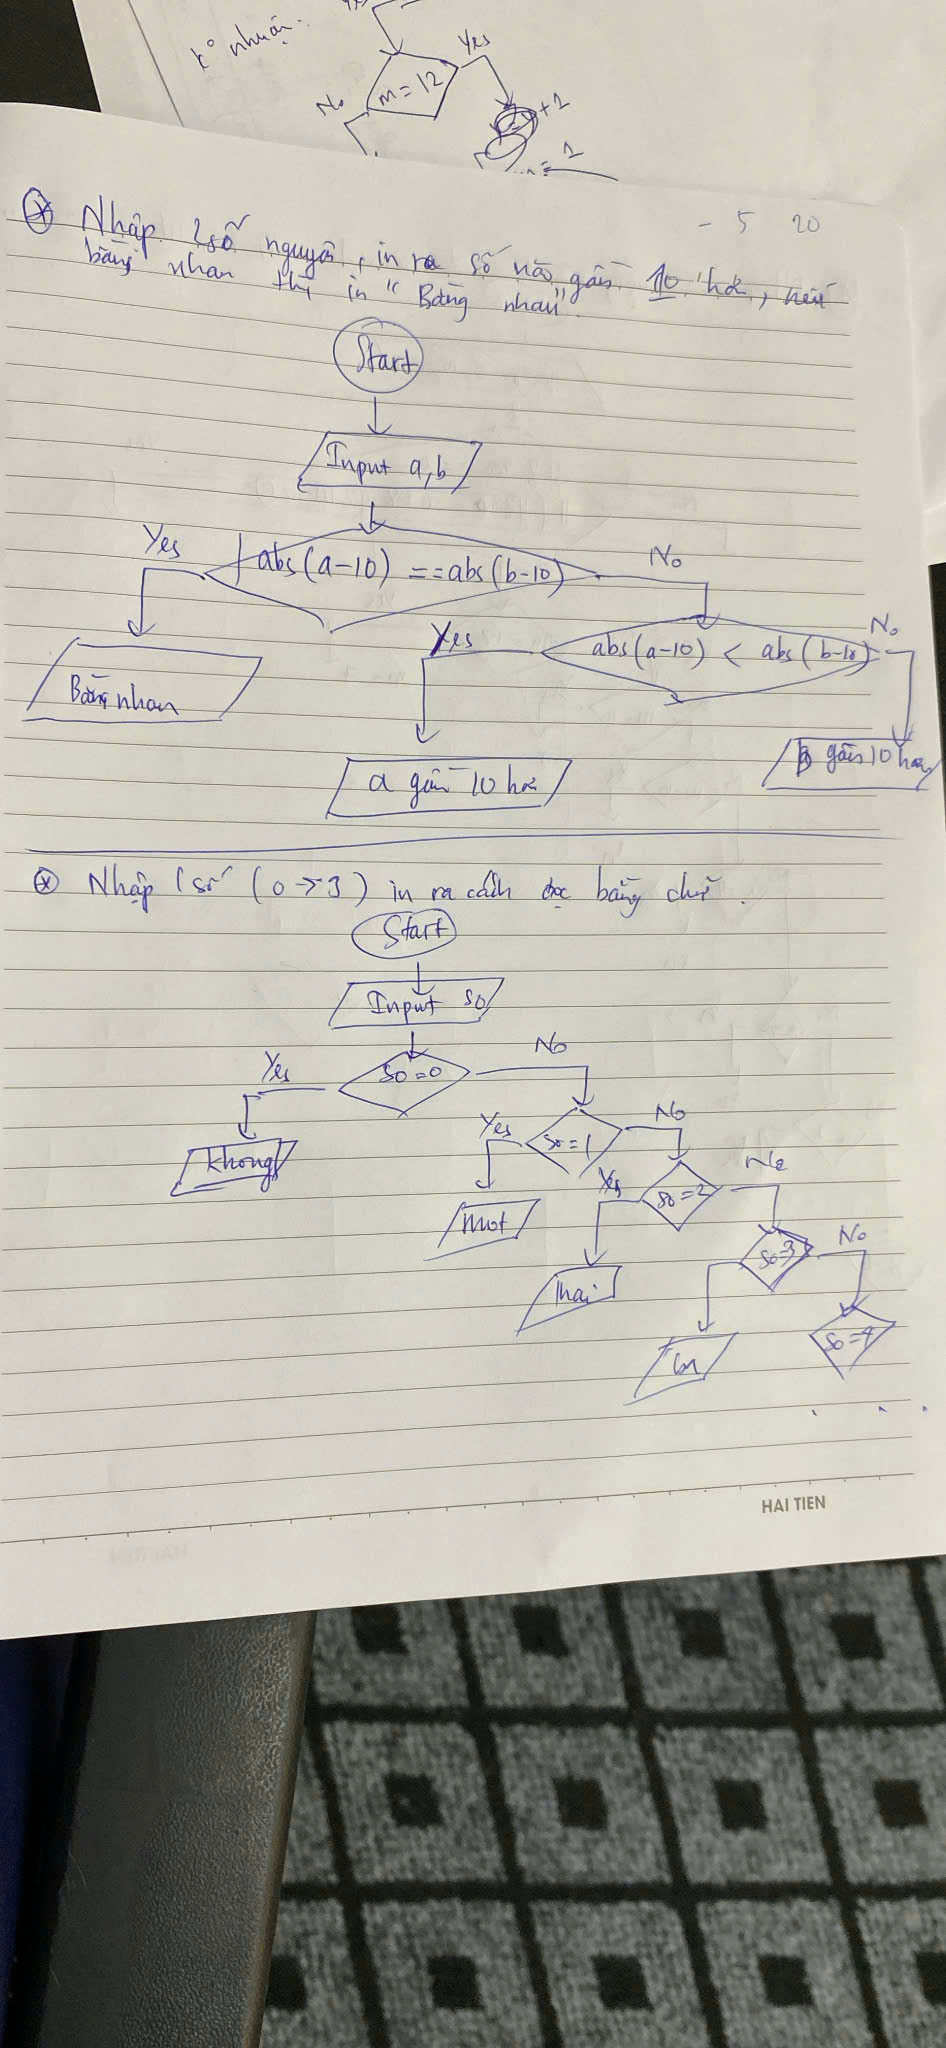 Yes
k° nhuận.
Yes
m = 12
No
+1
= 1
- 5 20
⊛ Nhập 2 số nguyên, in ra số nào gần 10 hơn, nếu
bằng nhau thì in "Bằng nhau".
Start
Input a, b
Yes
abs(a-10) == abs(b-10)
No
Yes
abs(a-10) < abs(b-10)
No
Bằng nhau
a gần 10 hơn
b gần 10 hơn
⊗ Nhập 1 số (0 → 3) in ra cách đọc bằng chữ.
Start
Input so
Yes
so=0
No
không
Yes
so=1
No
một
Yes
so=2
No
hai
so=3
No
ba
so=4
. . .
HAI TIEN